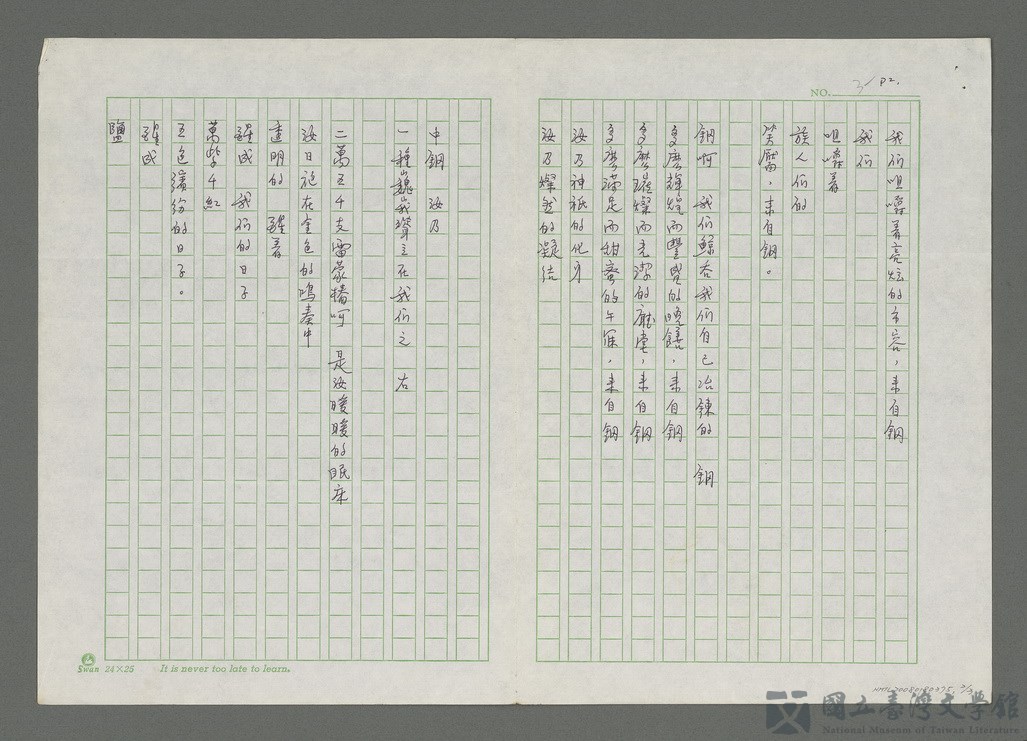 NO. 3/ P2.
我們咀嚼著亮炫的車容，來自鋼
我們
咀嚼著
族人們的
笑靨，來自鋼。
鋼呵 我們鯨吞我們自己冶鍊的 鋼
多麼輝煌而豐盛的晚饍，來自鋼
多麼璀燦而光潔的廳堂，來自鋼
多麼滿足而甜蜜的午寐，來自鋼
汝乃神祇的化身
汝乃燦然的凝結
中鋼 汝乃
一種巍峨聳立在我們之 右
二萬五千支雷蒙樁呵 是汝暖暖的眠床
汝日施在金色的鳴奏中
透明的 醒著
醒成 我們的日子
萬紫千紅
五色繽紛的日子。
醒成
鹽
Swan 24×25 It is never too late to learn.
國立臺灣文學館
National Museum of Taiwan Literature